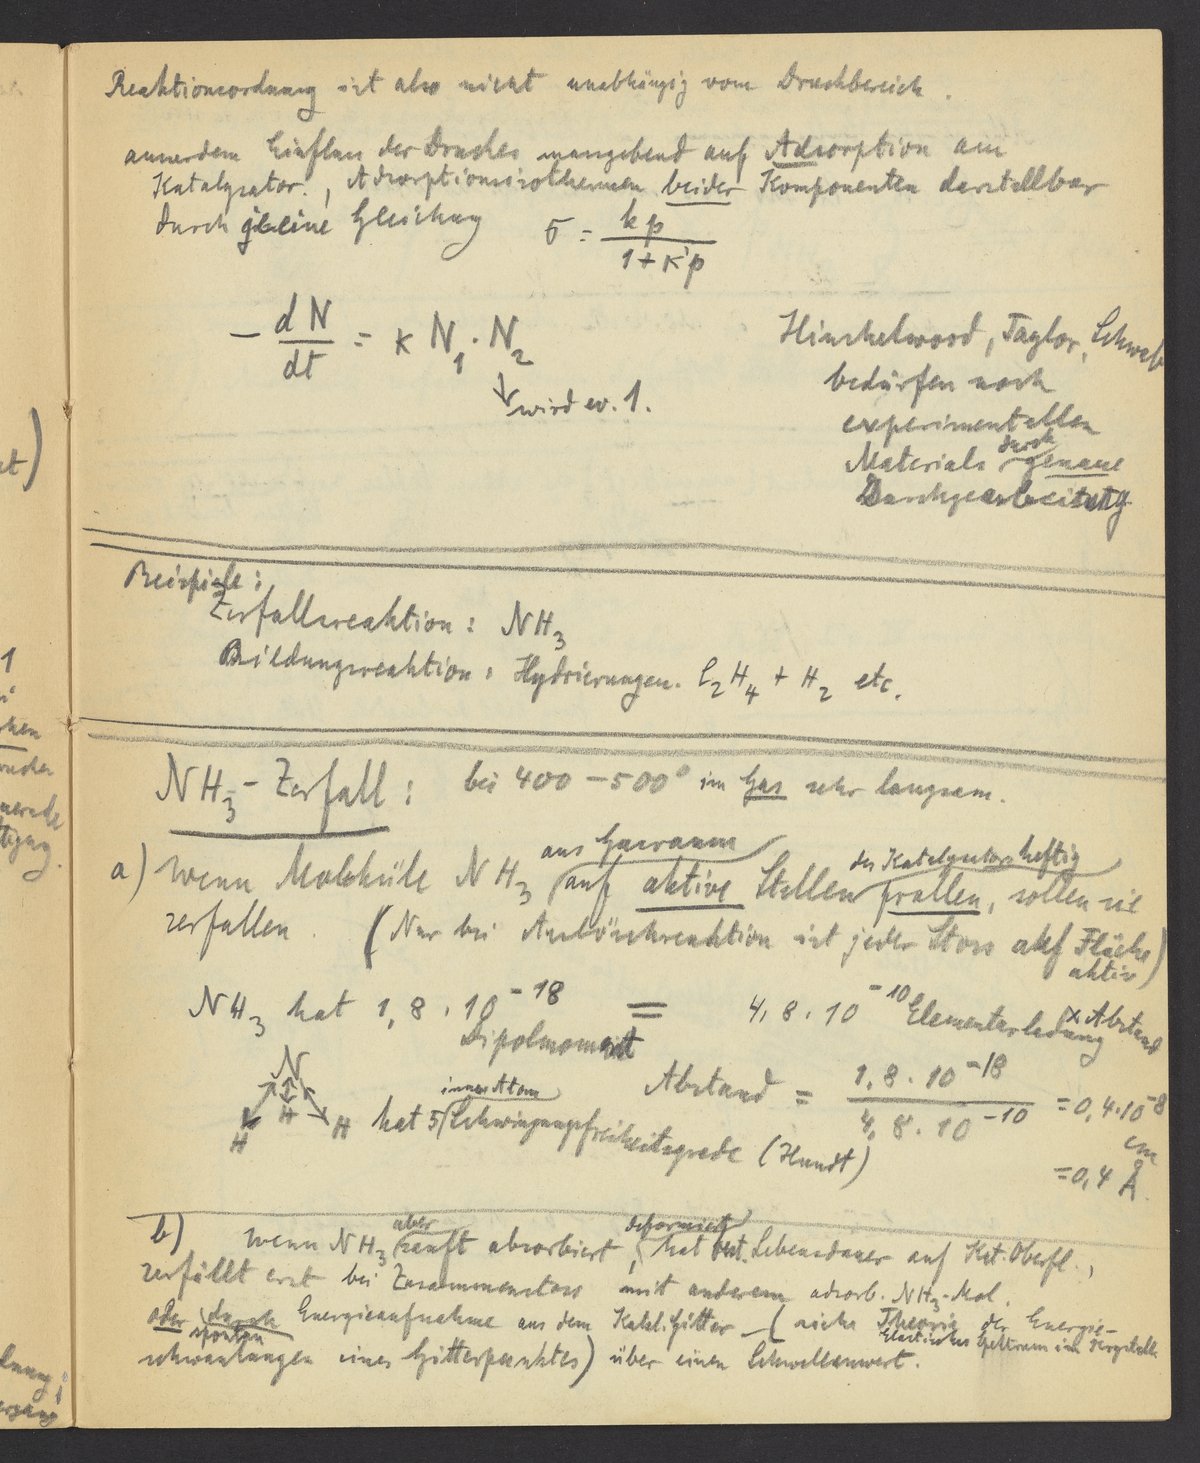 Reaktionsordnung ist also nicht unabhängig vom Druckbereich.
ausserdem Einfluss des Druckes massgebend auf Adsorption am
Katalysator., Adsorptionsisothermen beider Komponenten darstellbar
durch eine Gleichung σ = kp / 1 + k'p
- dN/dt = k N1 · N2
↓ wird ev. 1.
Hinshelwood, Taylor, Schwab
bedürfen noch
experimentellen
Materials durch genaue
Durchgearbeitung
Beispiele:
Zerfallsreaktion: NH3
Bildungsreaktion: Hydrierungen. C2H4 + H2 etc.
NH3-Zerfall: bei 400-500° im Gas sehr langsam.
a) Wenn Moleküle NH3 aus Gasraum auf aktive Stellen des Katalysators heftig prallen, sollen sie
zerfallen. (Nur bei Auslöschreaktion ist jeder Stoss auf Fläche
aktiv)
NH3 hat 1,8 · 10^-18 = 4,8 · 10^-10 Elementarladung x Abstand
Dipolmoment
N
H H H
Abstand = 1,8 · 10^-18 / 4,8 · 10^-10 = 0,4·10^-8
cm
= 0,4 Å.
hat 5 Schwingungsfreiheitsgrade (Hundt)
b) Wenn NH3 aber sanft absorbiert, deformiert, hat best. Lebensdauer auf Kat. Oberfl.,
zerfällt erst bei Zusammenstoss mit anderem adsorb. NH3-Mol.
oder spontan durch Energieaufnahme aus dem Katal. Gitter - (siehe Theorie der Energie-
Elastisches Spektrum im Krystall
schwankungen eines Gitterpunktes) über einen Schwellenwert.